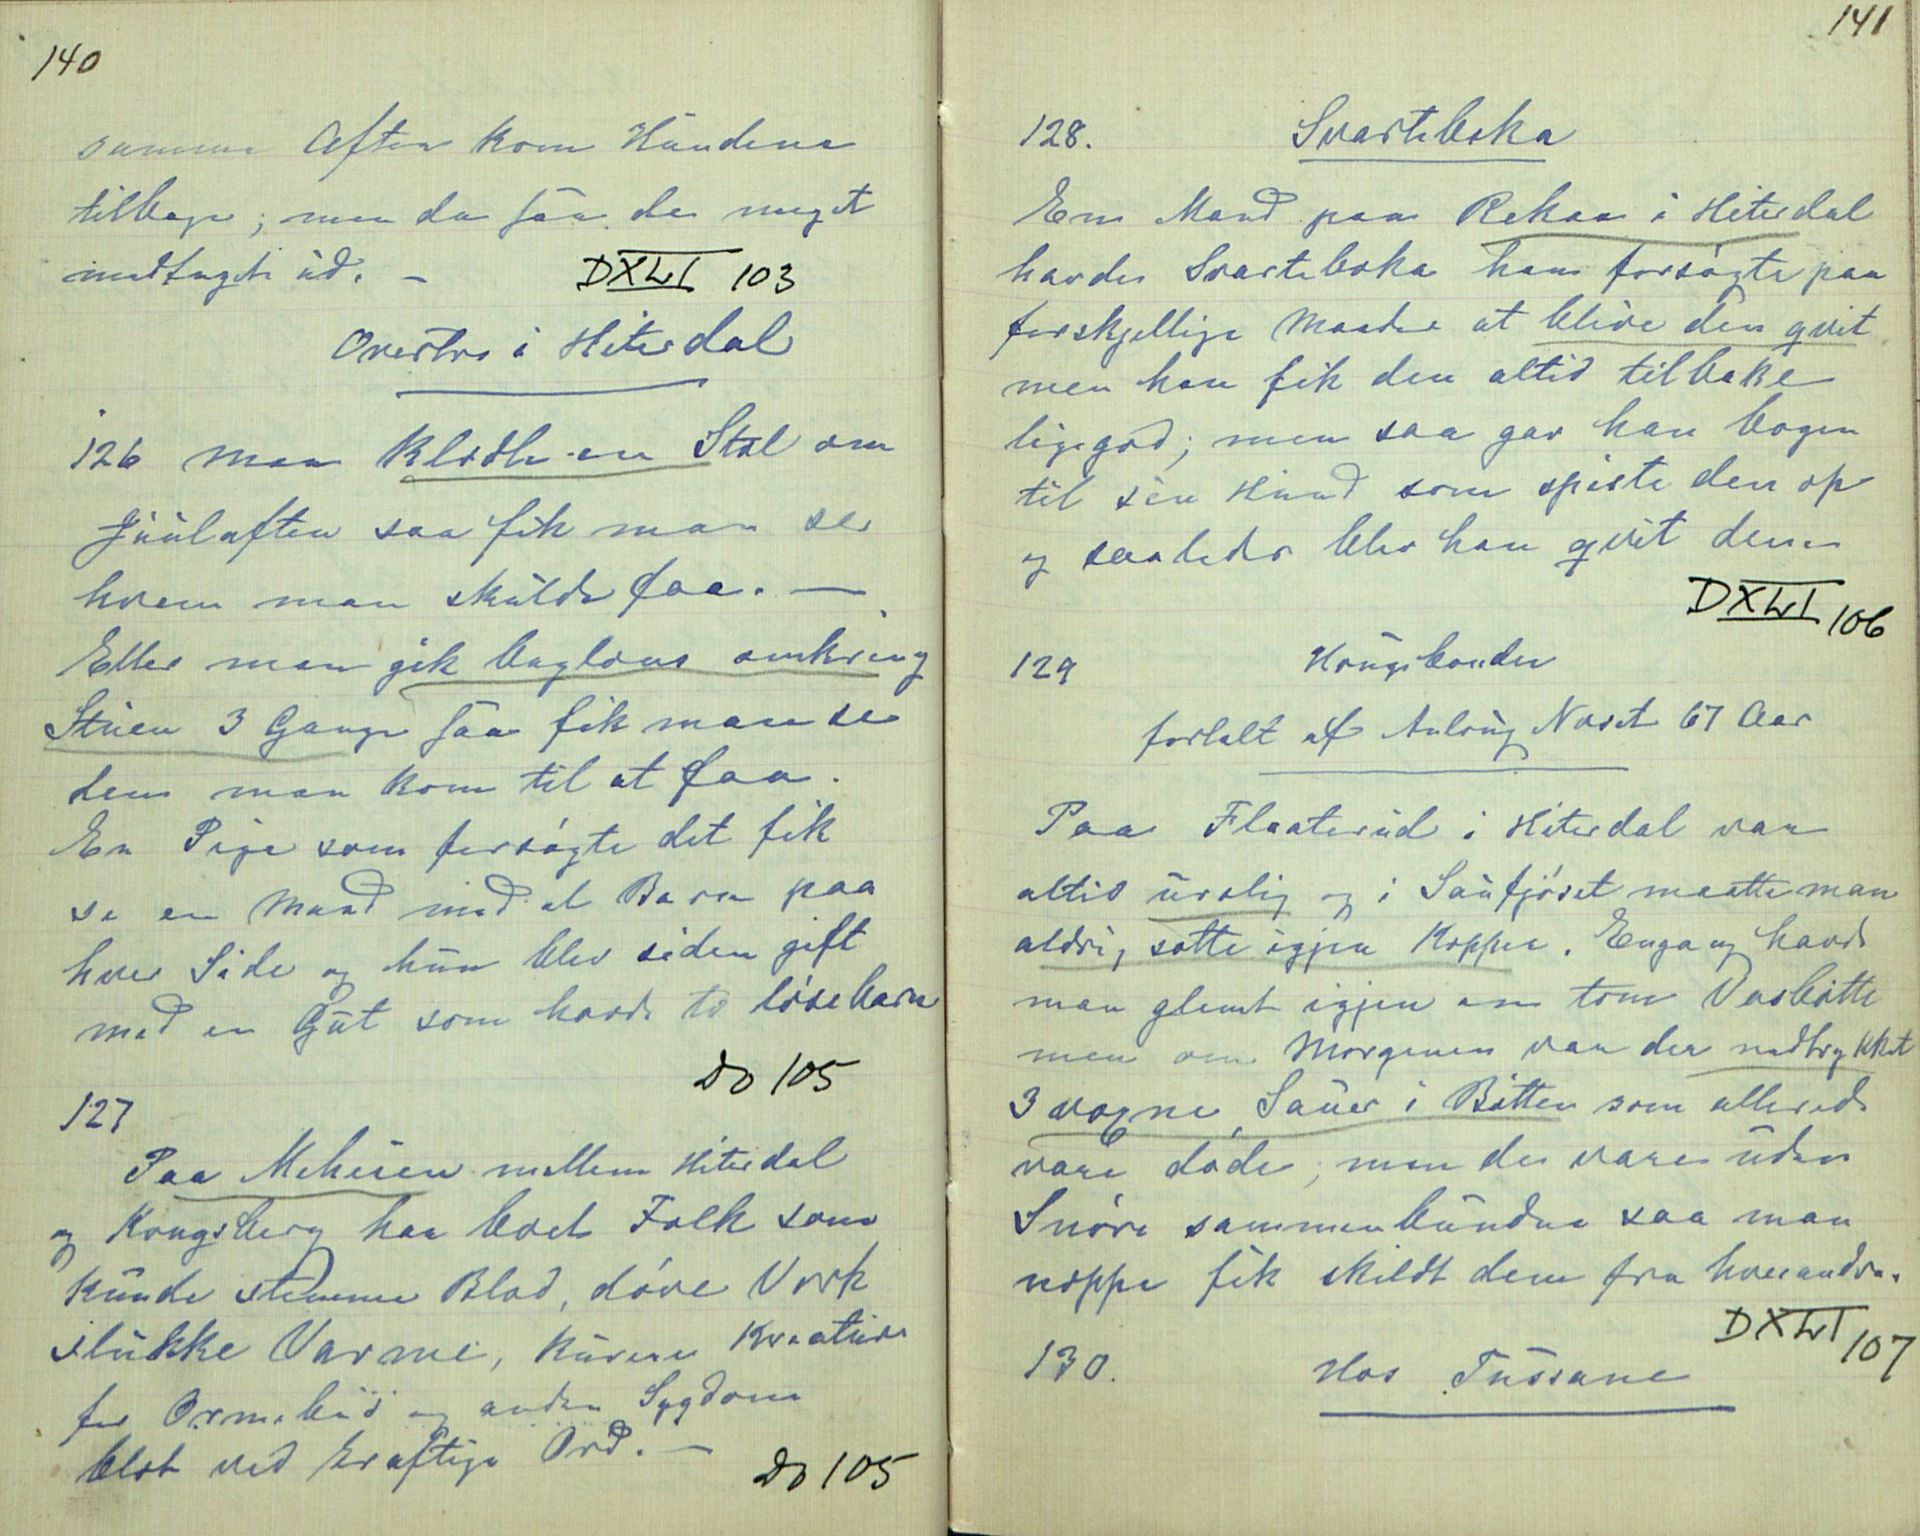 140
samme Aften kom Hundene
tilbage; men da saa de meget
medtagne ud. —
DXLI 103
Overtro i Hiterdal
126 Man klædte en Stol om
Juulaften saa fik man se
hvem man skulde faa. —
Eller man gik baglæns omkring
Stuen 3 Gange saa fik man se
dem man kom til at faa.
En Pige som forsøgte det fik
se en Mand med et Barn paa
hver Side og hun blev siden gift
med en Gut som havde to løsebarn
Do 105
127
Paa Meheien mellem Hiterdal
og Kongsberg har boet Folk som
kunde stemme Blod, døve Værk
slukke Varme, kurere Kreature
for Ormebid og anden Sygdom
blot ved kraftige Ord. —
Do 105
141
128. Svarteboka
En Mand paa Rekaa i Hiterdal
havde Svarteboka han forsøgte paa
forskjellige Maader at blive den qvit
men han fik den altid tilbake
ligegod; men saa gav han bogen
til sin Hund som spiste den op
og saaledes blev han qvit den
DXLI 106
129 Haugebonden
fortalt af Aslaug Næset 67 Aar
Paa Flaaterud i Hiterdal var
altid urolig og i Saufjøset maatte man
aldrig sætte igjen Kopper. Engang havde
man glemt igjen en tom Vasbøtte
men om Morgenen var der nedtrykket
3 vogne Sauer i Bøtten som allerede
vare døde; men de vare uden
Snøre sammenbundne saa man
neppe fik skildt dem fra hverandre.
DXLI 107
130. Hos Tussane